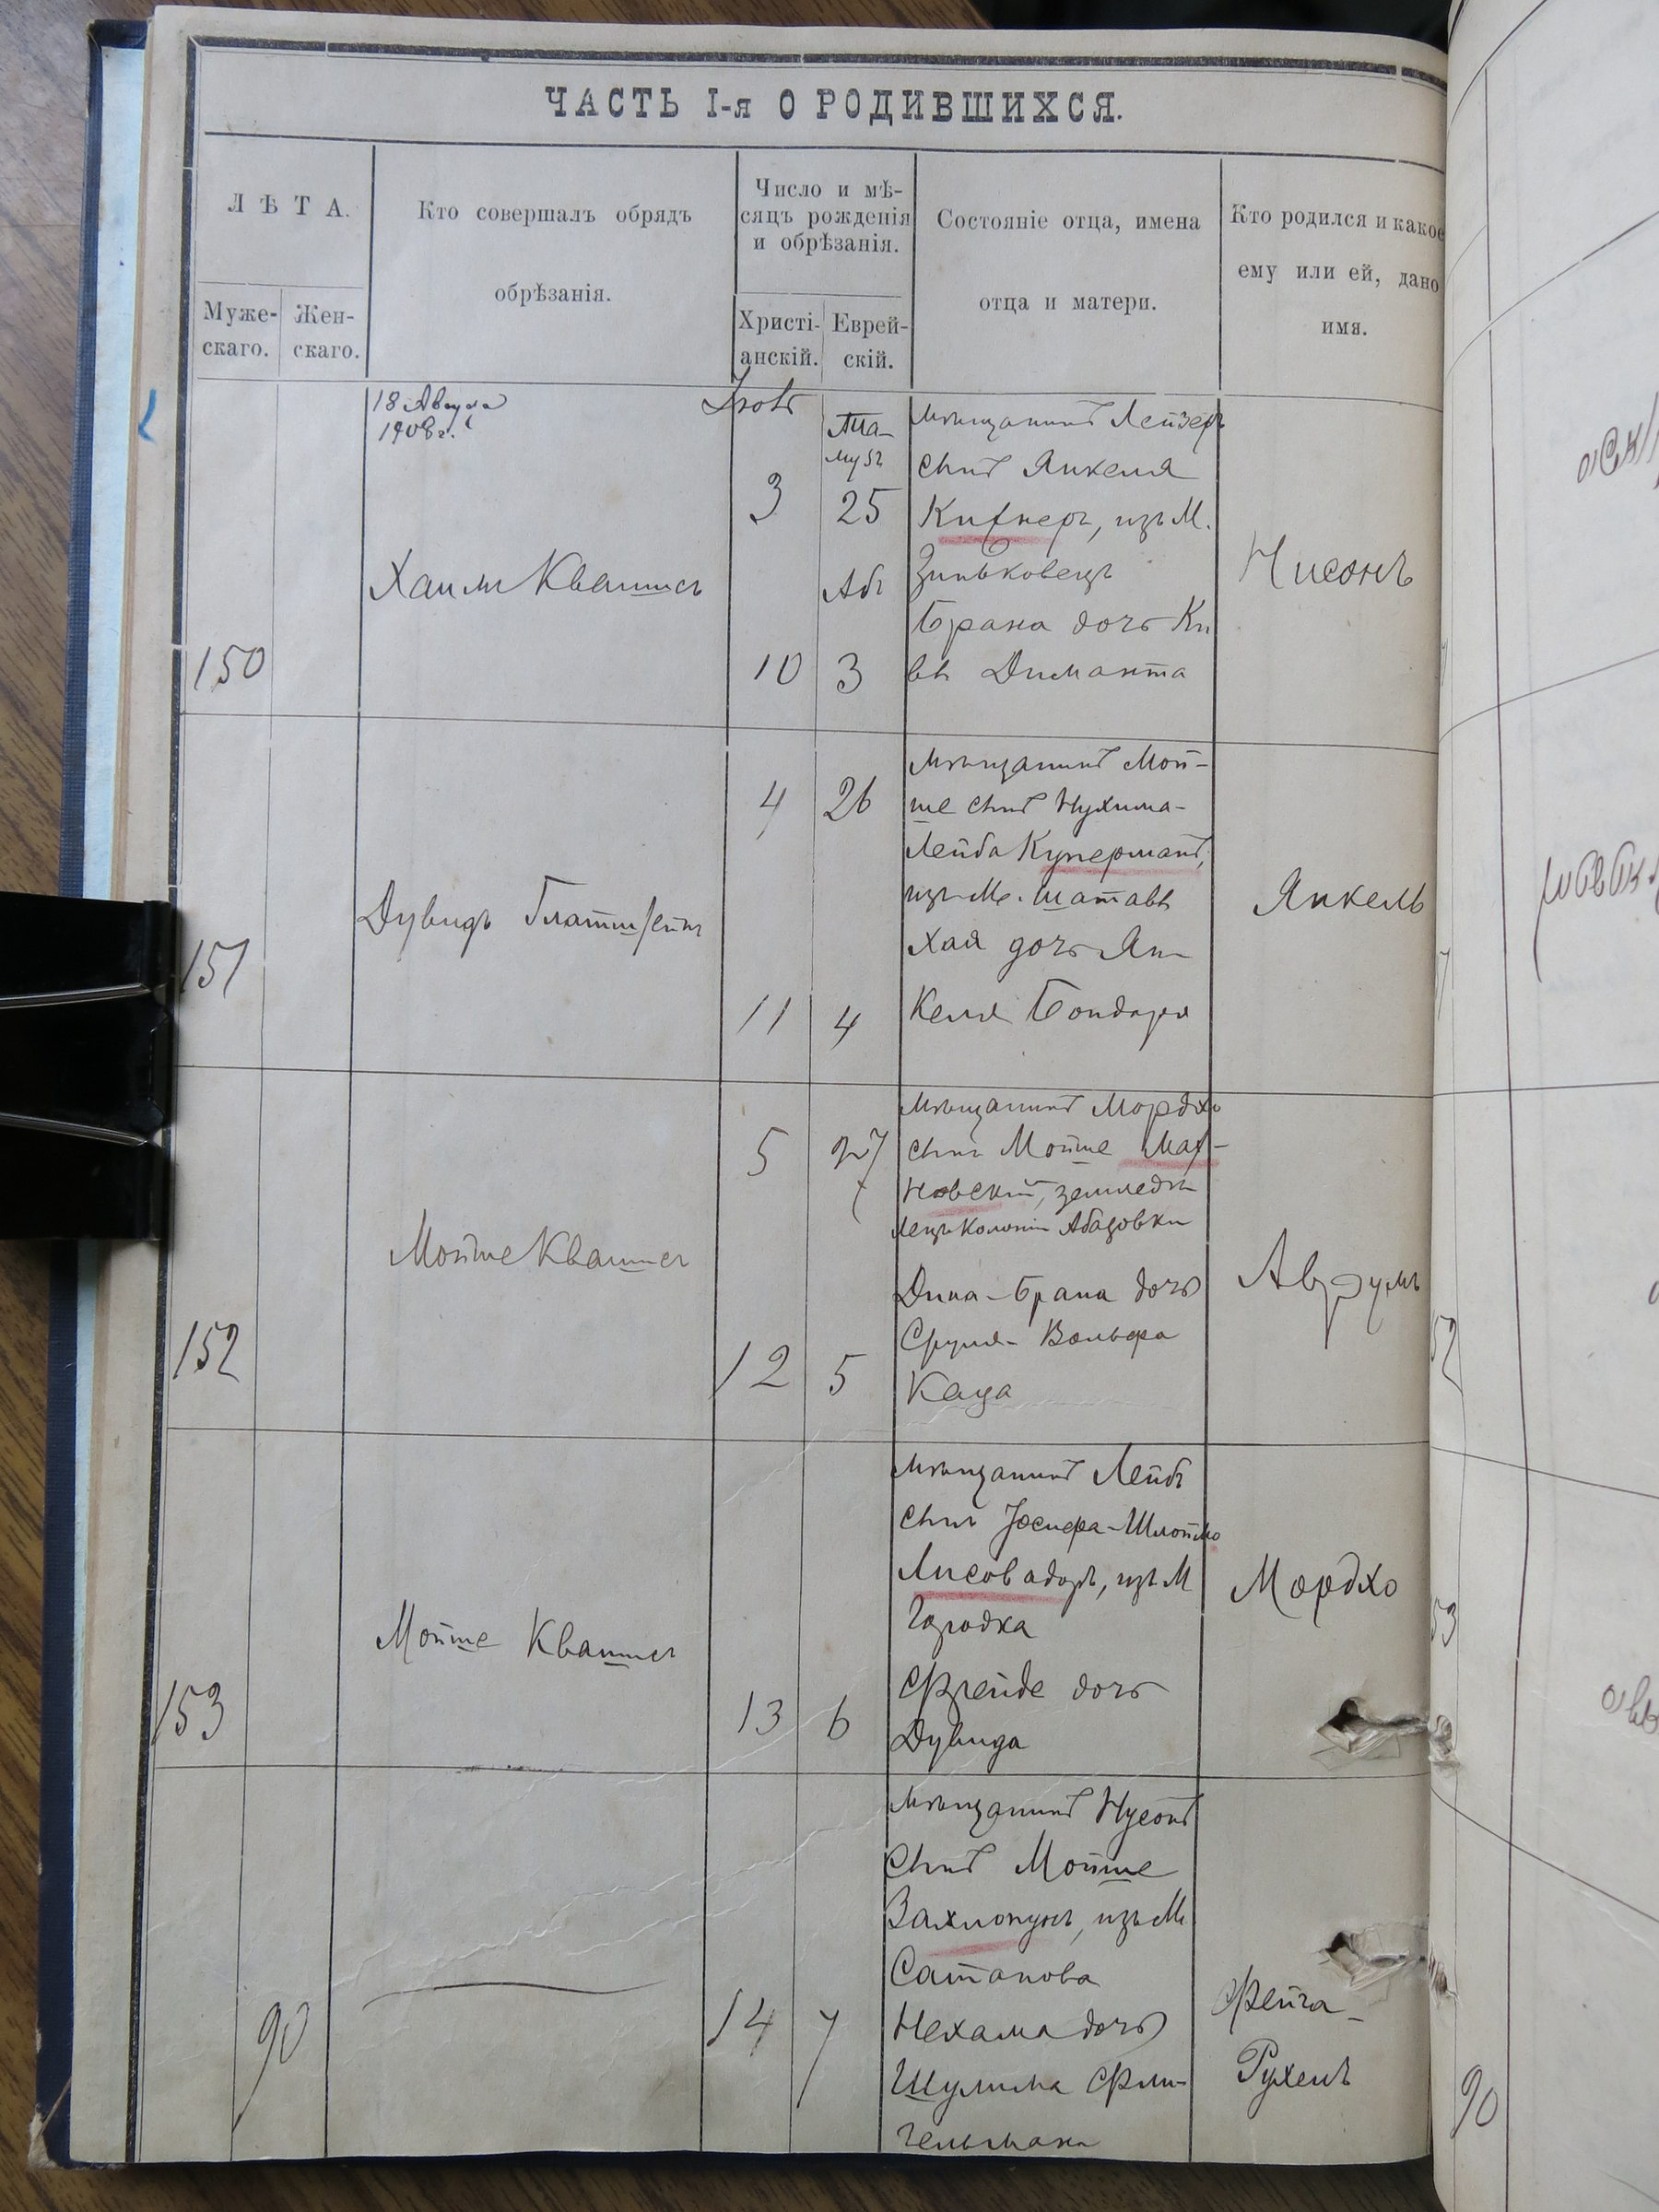 ЧАСТЬ I-я О РОДИВШИХСЯ.
ЛѢТА.
Муже-
скаго.
Жен-
скаго.
Кто совершалъ обрядъ
обрѣзанія.
Число и мѣ-
сяцъ рожденія
и обрѣзанія.
Христі-
анскій.
Еврей-
скій.
Состояніе отца, имена
отца и матери.
Кто родился и какое
ему или ей, дано
имя.
150
18 Августа
1908 г.
Хаимъ Квашисъ
3
10
Та-
музъ
25
Абъ
3
Мѣщанинъ Лейзеръ
сынъ Янкеля
изъ М.
Зиньковецъ
Брана дочь Ки
вы Диманта
Нисонъ
151
Дувидъ
4
11
26
4
Мѣщанинъ Мой-
ше сынъ Нухима-
Лейба Куперманъ,
изъ М. Шатавы
Хая дочь Ян-
келя Бондаря
Янкель
152
Мойше Квашисъ
5
12
27
5
Мѣщанинъ Мордхо
сынъ Мойше
земледѣ
лецъ колоніи Абазовки
Дина-Брана дочь
Сруля-Вольфа
Каца
Аврумъ
153
Мойше Квашисъ
13
6
Мѣщанинъ Лейбъ
сынъ Іосифа-Шлоймо
Лисоводоръ, изъ М
Городка
Фрейде дочь
Дувида
Мордхо
90
14
7
Мѣщанинъ Нусонъ
сынъ Мойше
изъ М
Сатанова
Нехама дочь
Шулима Фли-
гельмана
Фейга-
Рухель
52
53
90